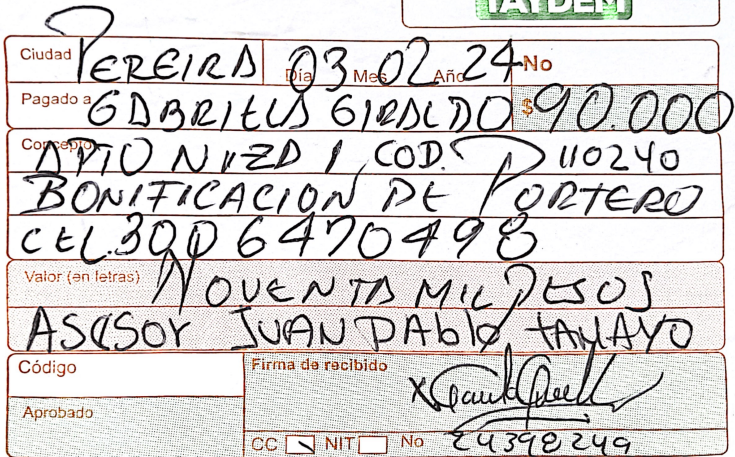 TAYDEM
Ciudad PEREIRA Día 03 Mes 02 Año 24 No
Pagado a GABRIELA GIRALDO $ 90.000
Concepto APTO NIZA 1, COD. P 110240
BONIFICACION DE PORTERO
CEL. 300 6470498
Valor (en letras) NOVENTA MIL PESOS
ASESOR JUAN PABlo TAMAYO
Código
Firma de recibido
X
Aprobado
CC NIT No 24398249